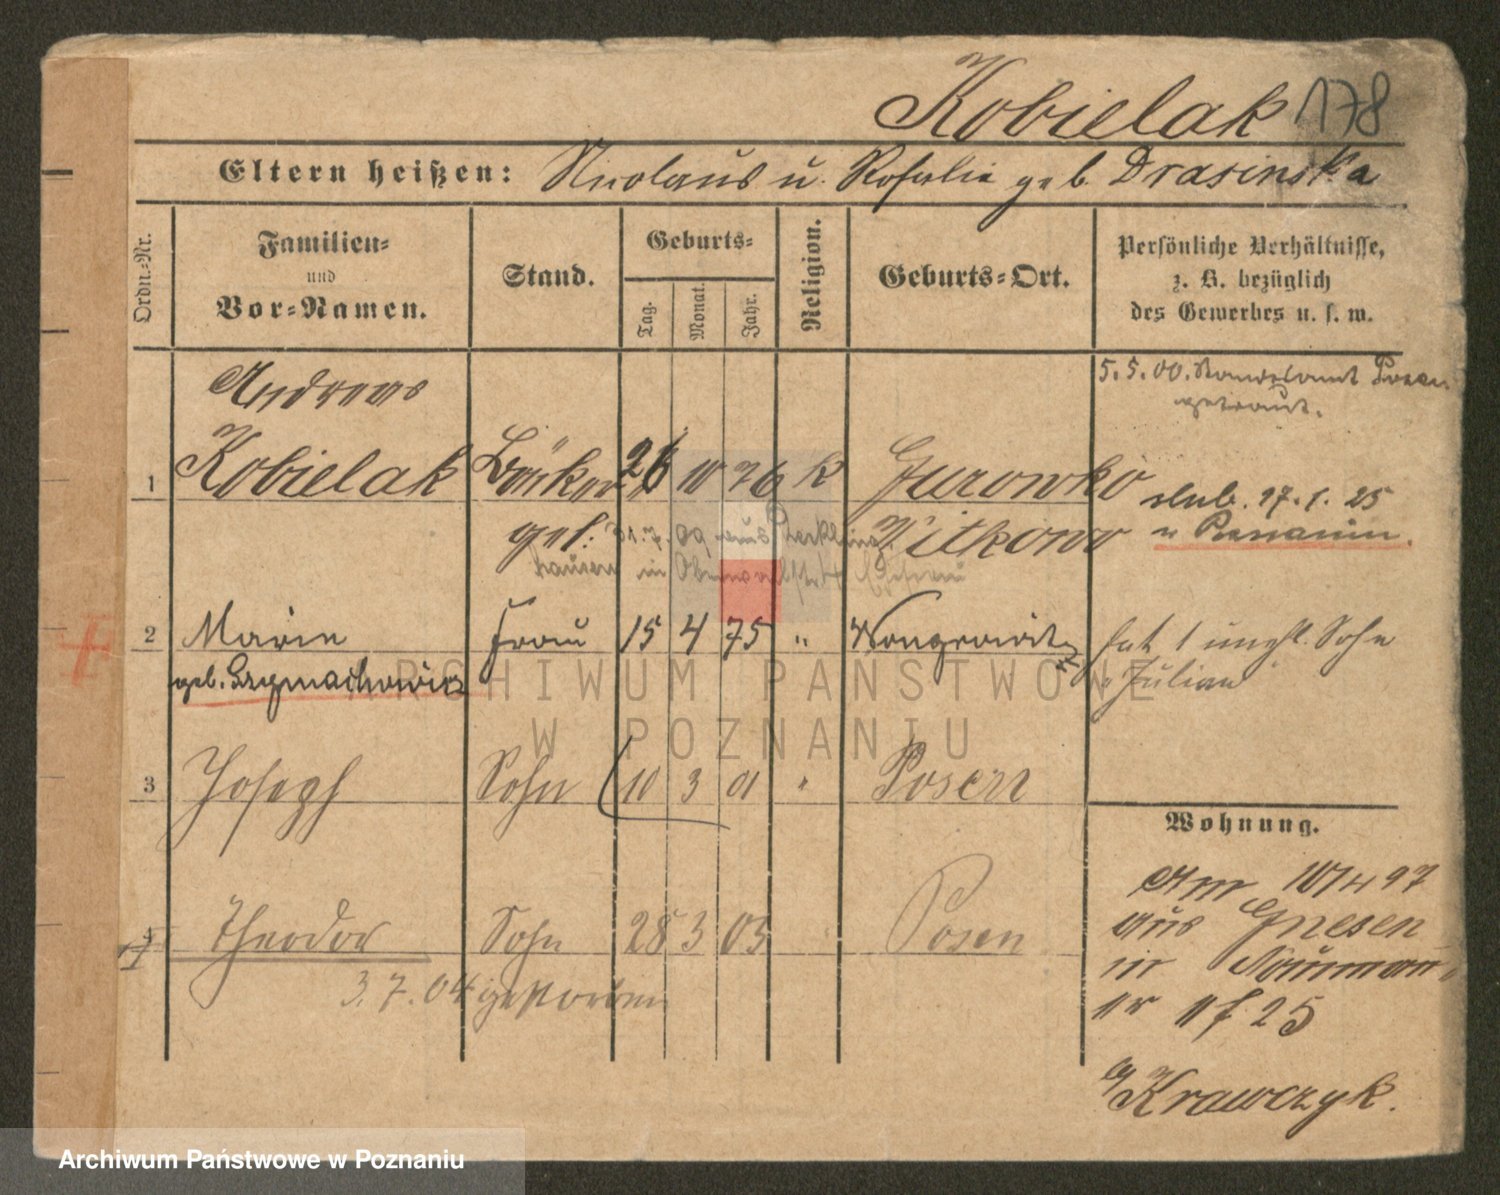 Kobielak 178
Eltern heißen: Nicolaus u. Rosalie geb. Drasinska
Ordn.-Nr.
Familien-
und
Vor-Namen.
Stand.
Geburts-
Tag.
Monat.
Jahr.
Religion.
Geburts-Ort.
Persönliche Verhältnisse,
z. B. bezüglich
des Gewerbes u. s. w.
5.5.00. Standesamt Posen
getraut.
Andreas
1 Kobielak Bäcker 26 10 76 k Gurowko
Witkowo
gest. 17.1.25
31.7.09 aus
hausen in
2 Marie Frau 15 4 75 " Wongrowitz
geb. Szymachowicz
hat 1 unehl. Sohn
Julian
3 Joseph Sohn 10 3 01 " Posen
4 Theodor Sohn 28 3 03 Posen
3.7.04 gestorben
Wohnung.
Am 10/4 97
aus Gnesen
in
25
b/ Krawczyk.
ARCHIWUM PAŃSTWOWE
W POZNANIU
Archiwum Państwowe w Poznaniu